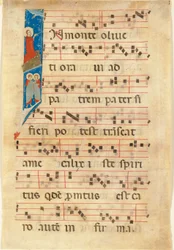 N monte oliue
ti ora ui ad
patrem pater si
fieri po test trāseat
a me calix i ste spiri
tus qdē prōtus est ca
ro autē in fir ma